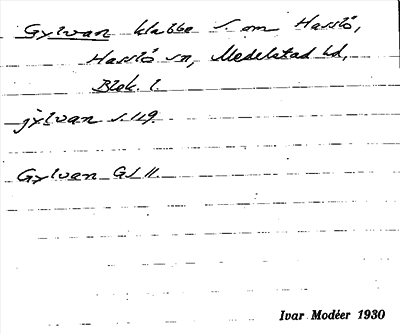 Gylvan klabbe S. om Hasslö,
Hasslö sn, Medelstad hd,
Blek. l.
jylvan s. 119.
Gylvan GS 11.
Ivar Modéer 1930